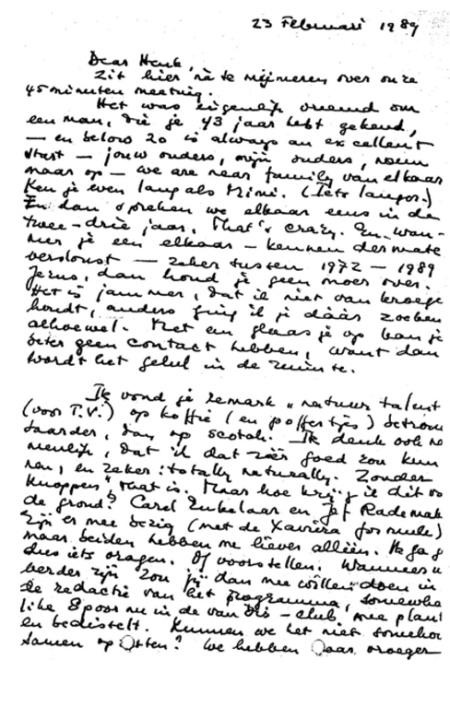 23 Februari 1989
Dear Henk,
Zit hier nà te mijmeren over onze
45 minuten meeting.
Het was eigenlijk vreemd om
een man, die je 43 jaar hebt gekend,
— en below 20 is always an excellent
start — jouw ouders, mijn ouders, noem
maar op — we are near family van elkaar
Ken je even lang als Mimi. (Iets langer.)
En dan spreken we elkaar eens in de
twee-drie jaar. That's crazy. En wan-
neer je een elkaar — kennen dermate
verslonst — zeker tussen 1972 — 1989
Jezus, dan houd je geen moer over.
Het is jammer, dat je niet van kroege
houdt, anders ging ik je dáár zoeken
alhoewel. Met een glaasje op kan je
beter geen contact hebben, want dan
wordt het gelul in de ruimte.
Ik vond je remark "natuur talent
(voor T.V.) op koffie (en poffertjes) betrou
baarder, dan op scotch. Ik denk ook na
menlijk, dat ik dat zéér goed zou kun
nen, en zeker: totally naturally. Zonder
knoppen that is. Maar hoe krijg ik dit va
de grond? Carel Enkelaar en Jef Rademak
zijn er mee bezig (met de Xaviera formule)
maar beiden hebben me liever alléén. Ik ga g
dus iets vragen. Of voorstellen. Wanneer w
verder zijn zou jij dan mee willen doen in
de redactie van het programma, somewha
like 8poor nu in de van Dis-club mee plant
en bedisselt. Kunnen we het niet somehow
samen op Otten? We hebben Daar vroeger